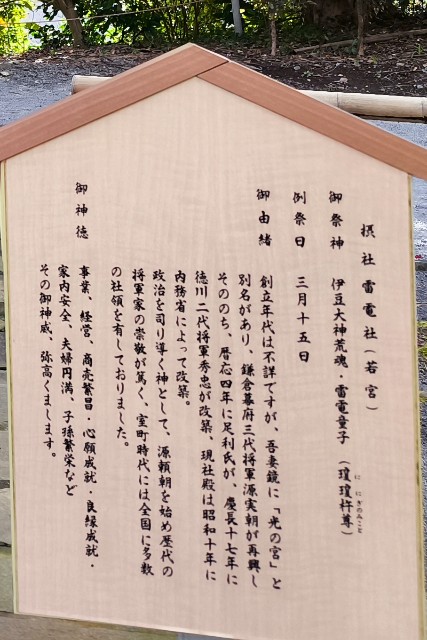 摂社 雷電社(若宮)
御祭神 伊豆大神荒魂・雷電童子(瓊瓊杵尊)
ににぎのみこと
例祭日 三月十五日
御由緒 創立年代は不詳ですが、吾妻鏡に「光の宮」と
別名があり、鎌倉幕府三代将軍源実朝が再興し
そののち、暦応四年に足利氏が、慶長十七年に
徳川二代将軍秀忠が改築、現社殿は昭和十年に
内務省によって改築。
政治を司り導く神として、源頼朝を始め歴代の
将軍家の崇敬が篤く、室町時代には全国に多数
の社領を有しておりました。
御神徳 事業、経営、商売繁昌・心願成就・良縁成就・
家内安全、夫婦円満、子孫繁栄など
その御神威、弥高くまします。